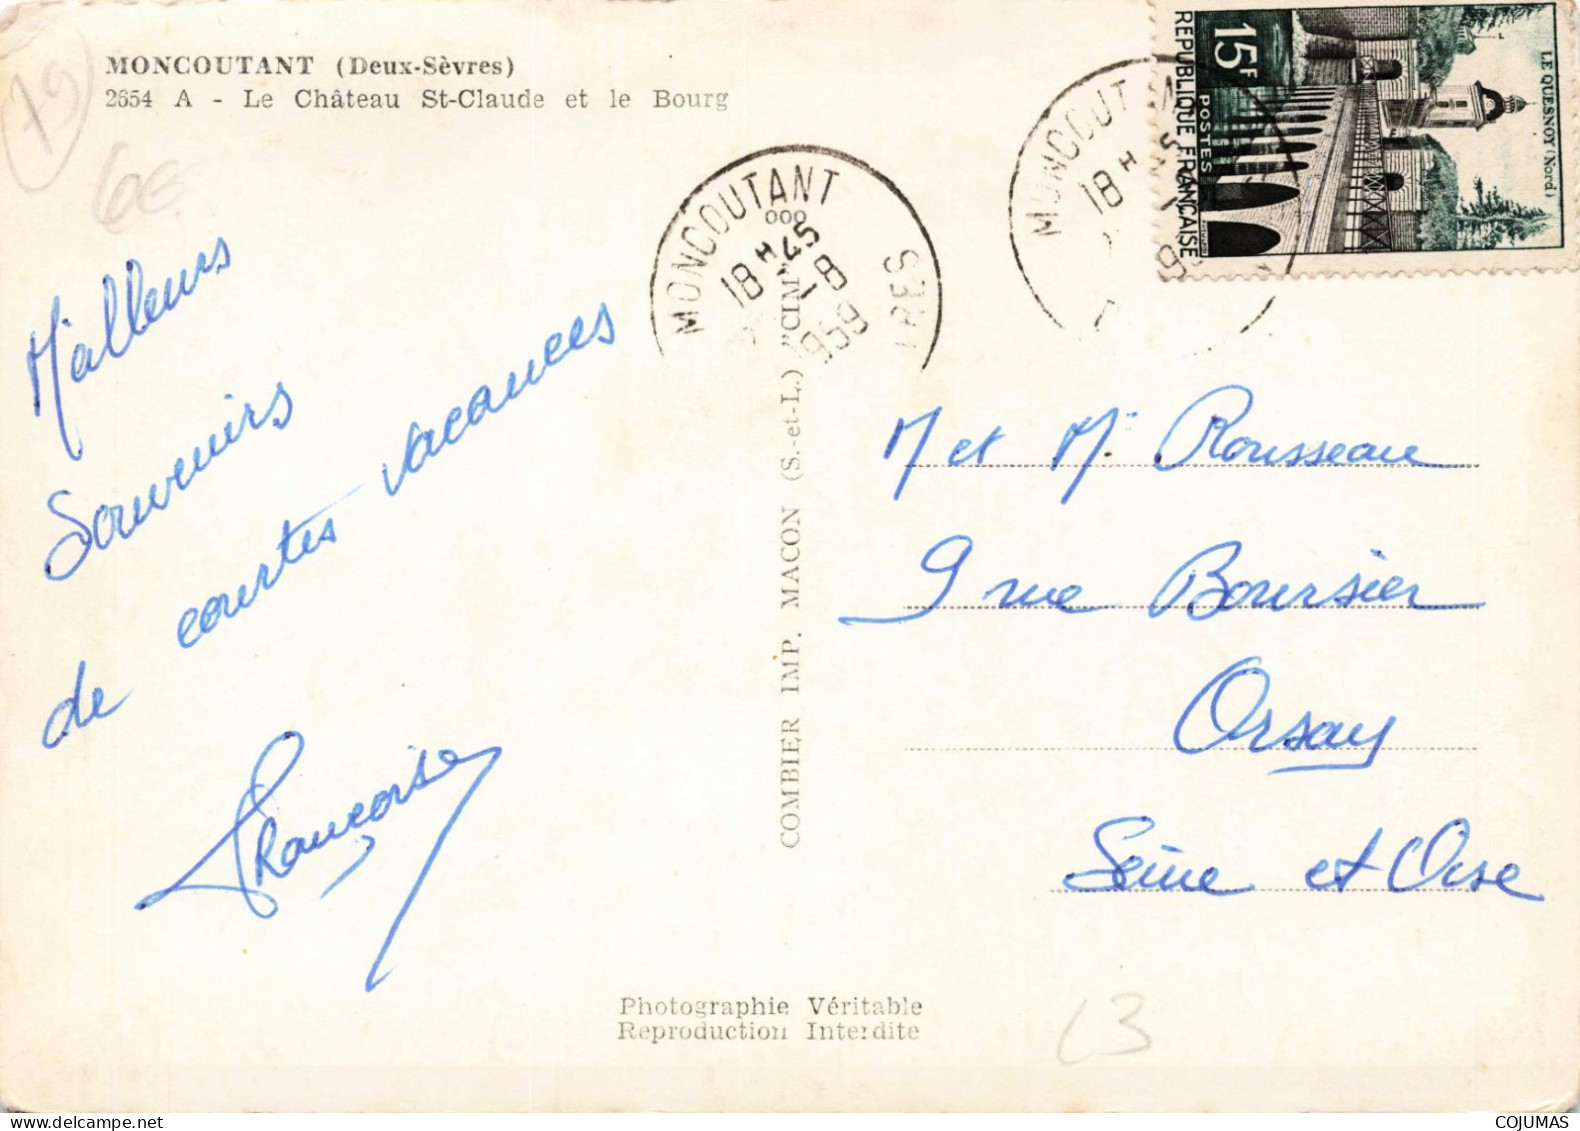 MONCOUTANT (Deux-Sèvres)
2654 A - Le Château St-Claude et le Bourg
79
6€
Meilleurs
Souvenirs
de courtes vacances
Françoise
MONCOUTANT
18 H 45
1-8
1959
COMBIER IMP. MACON (S.-et-L.) "CIM"
MONCOUTANT
18 H
15F
POSTES
REPUBLIQUE FRANÇAISE
LE QUESNOY (Nord)
M et Mme Rousseau
9 rue Boursier
Orsay
Seine et Oise
Photographie Véritable
Reproduction Interdite
L3
COJUMAS